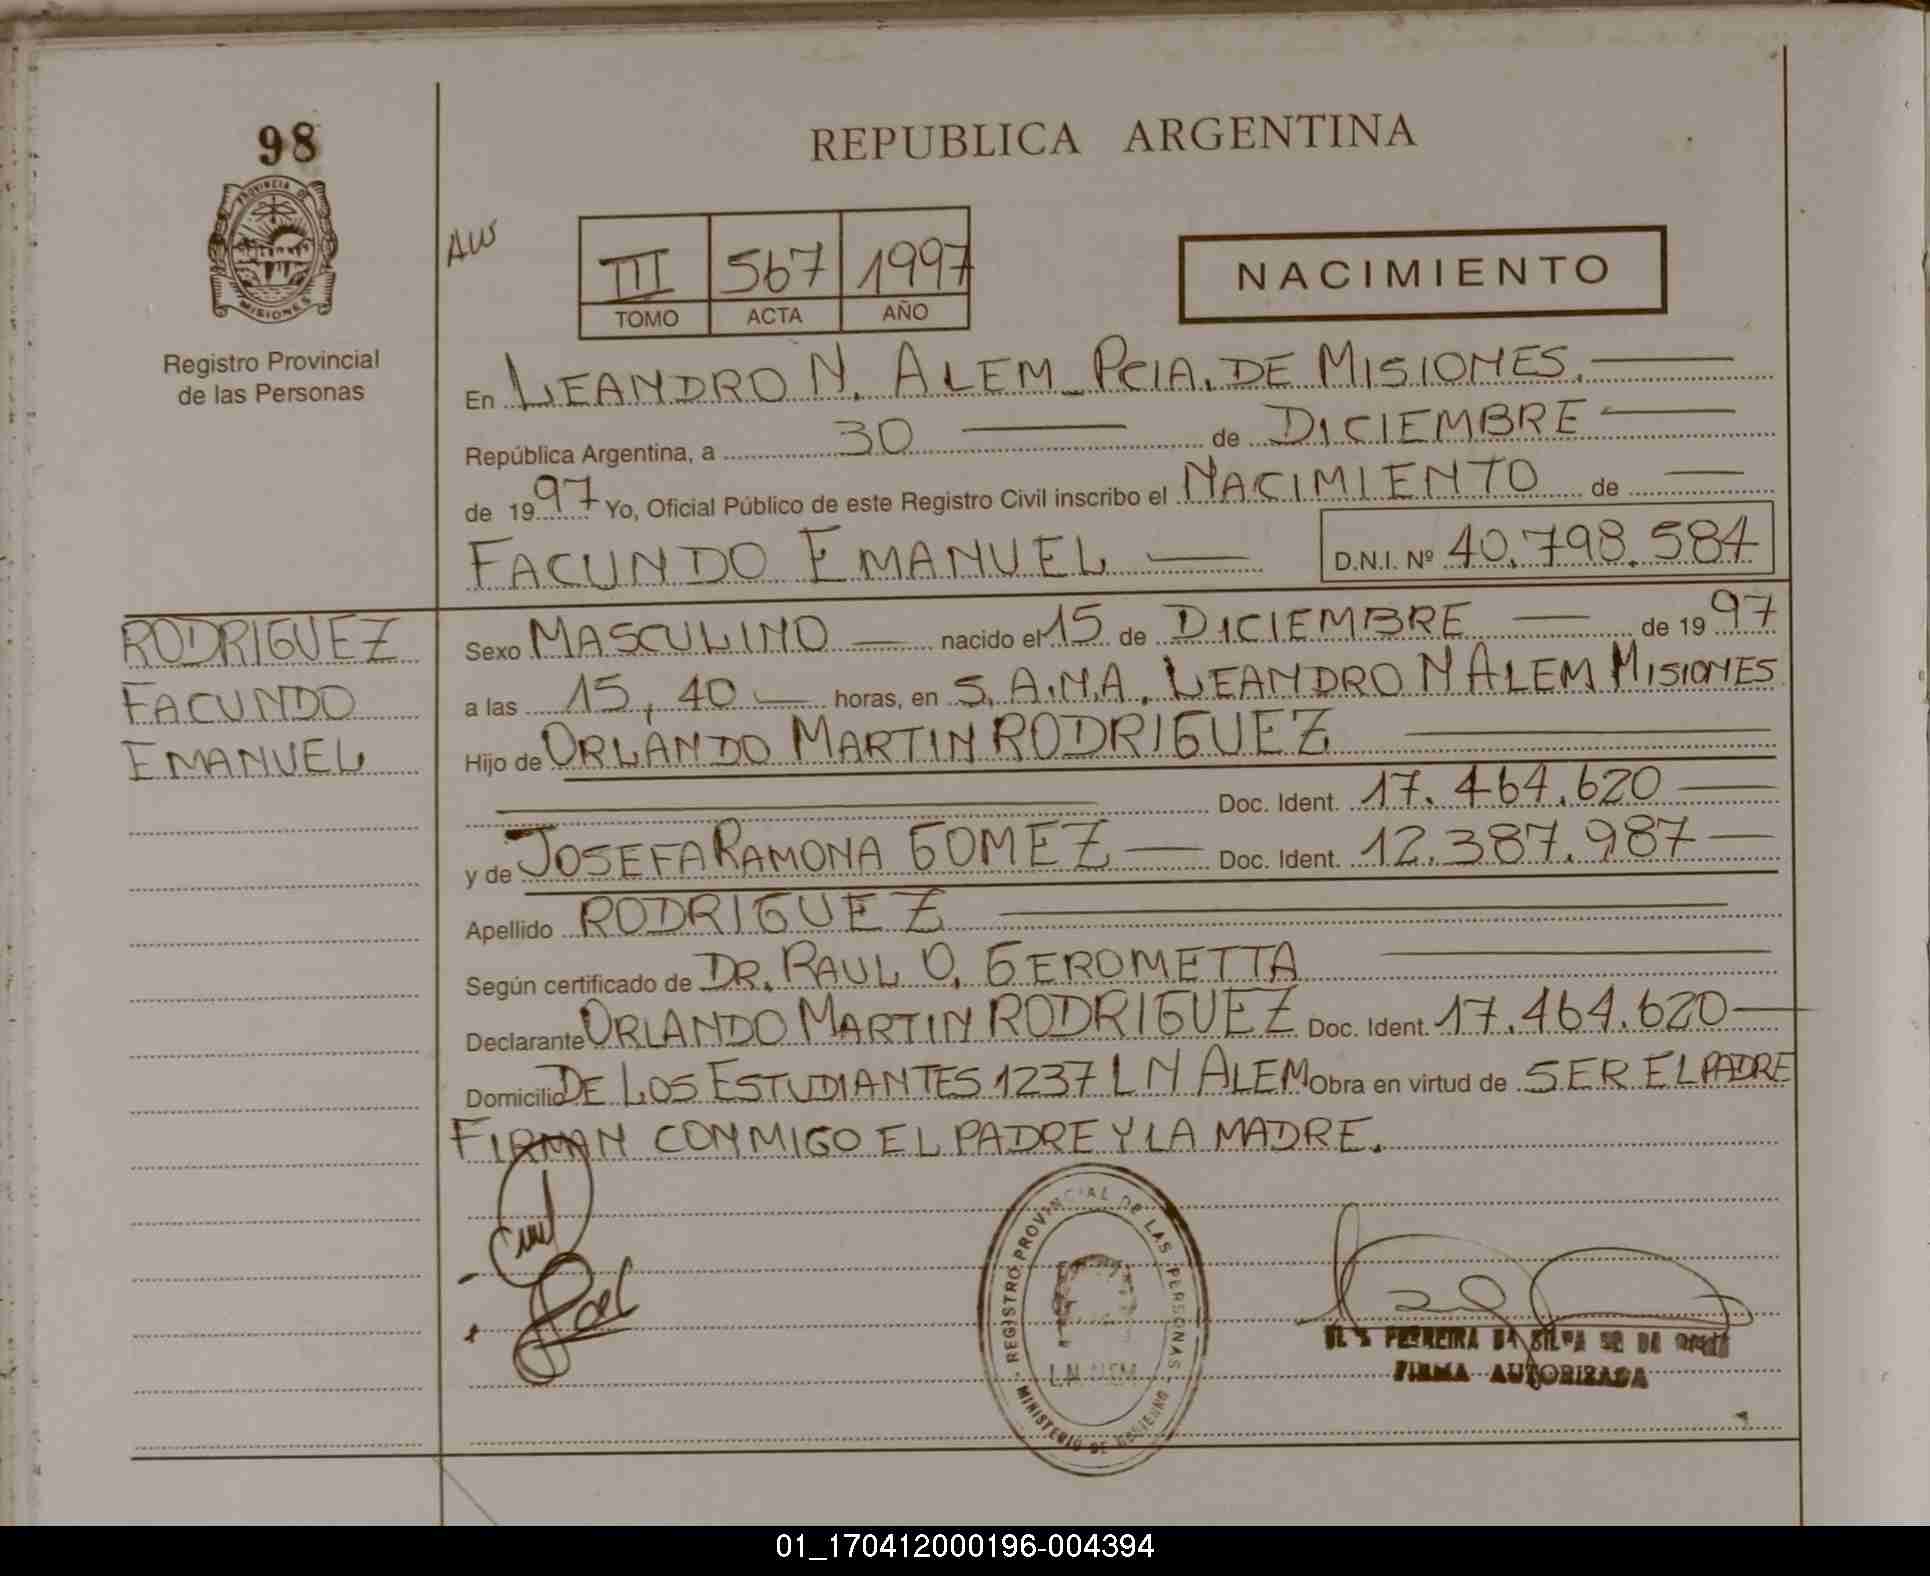 98
PROVINCIA D
MISIONES
Registro Provincial
de las Personas
REPUBLICA ARGENTINA
AW
III 567 1997
TOMO ACTA AÑO
NACIMIENTO
En LEANDRO N. ALEM_PCIA. DE MISIONES.
República Argentina, a 30 de DICIEMBRE
de 1997 Yo, Oficial Público de este Registro Civil inscribo el NACIMIENTO de
FACUNDO EMANUEL D.N.I. Nº 40.798.584
RODRIGUEZ
FACUNDO
EMANUEL
Sexo MASCULINO nacido el 15 de DICIEMBRE de 1997
a las 15,40 horas, en S.A.M.A. LEANDRO N ALEM MISIONES
Hijo de ORLANDO MARTIN RODRIGUEZ
Doc. Ident. 17.464.620
y de JOSEFA RAMONA GOMEZ Doc. Ident. 12.387.987
Apellido RODRIGUEZ
Según certificado de DR. RAUL O. GEROMETTA
Declarante ORLANDO MARTIN RODRIGUEZ Doc. Ident. 17.464.620
Domicilio DE LOS ESTUDIANTES 1237 L N ALEM Obra en virtud de SER EL PADRE
FIRMAN CONMIGO EL PADRE Y LA MADRE.
REGISTRO PROVINCIAL DE LAS PERSONAS
L.N. ALEM
MINISTERIO DE GOBIERNO
FERREIRA DA SILVA DE DA
FIRMA AUTORIZADA
01_170412000196-004394